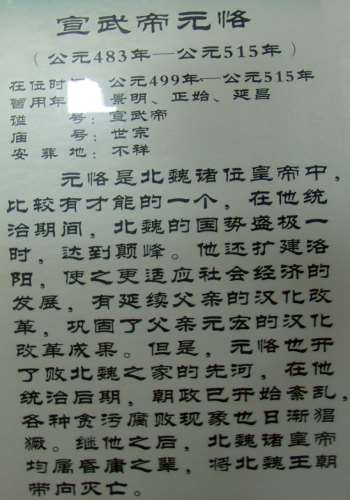 宣武帝元恪
(公元483年—公元515年)
在位时 公元499年—公元515年
曾用年 景明、正始、延昌
谥 号：宣武帝
庙 号：世宗
安葬地：不祥
元恪是北魏诸位皇帝中，
比较有才能的一个，在他统
治期间，北魏的国势盛极一
时，达到颠峰。他还扩建洛
阳，使之更适应社会经济的
发展，有延续父亲的汉化改
革，巩固了父亲元宏的汉化
改革成果。但是，元恪也开
了败北魏之家的先河，在他
统治后期，朝政已开始紊乱，
各种贪污腐败现象也日渐猖
獗。继他之后，北魏诸皇帝
均属昏庸之辈，将北魏王朝
带向灭亡。